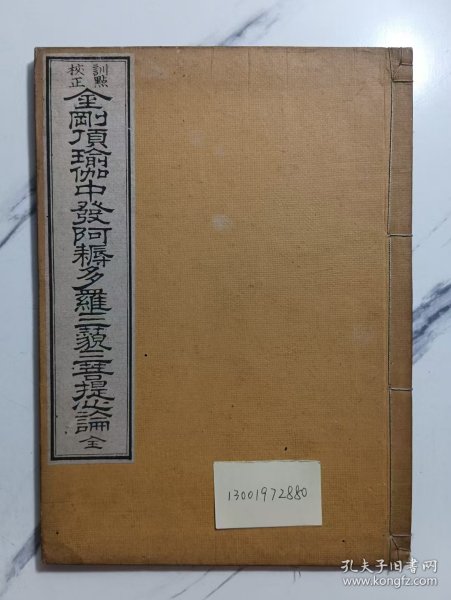 訓點
校正
金剛頂瑜伽中發阿耨多羅三藐三菩提心論 全
13001972880
孔夫子旧书网
www.kongfz.com